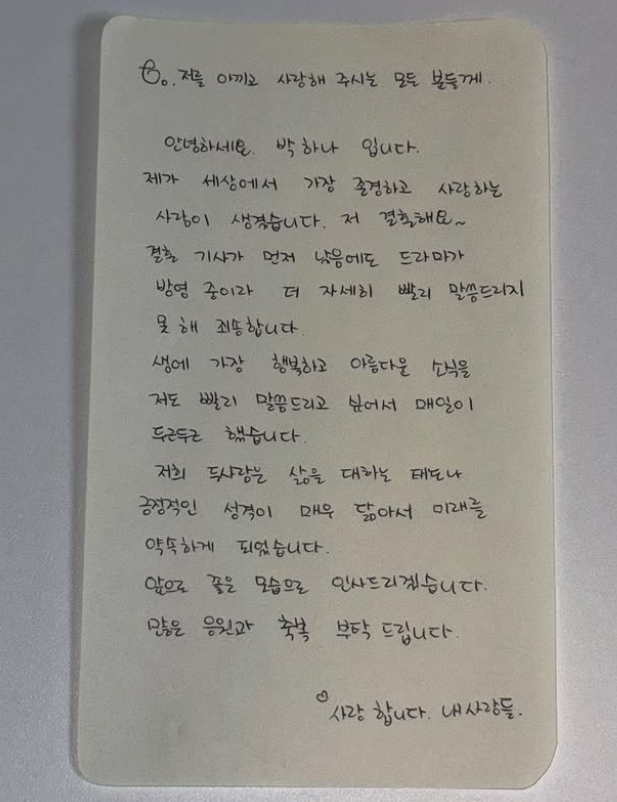 To. 저를 아끼고 사랑해 주시는 모든 분들께.
안녕하세요. 박하나 입니다.
제가 세상에서 가장 존경하고 사랑하는
사람이 생겼습니다. 저 결혼해요~
결혼 기사가 먼저 났음에도 드라마가
방영 중이라 더 자세히 빨리 말씀드리지
못 해 죄송합니다.
생에 가장 행복하고 아름다운 소식을
저도 빨리 말씀드리고 싶어서 매일이
두근두근 했습니다.
저희 두사람은 삶을 대하는 태도나
긍정적인 성격이 매우 닮아서 미래를
약속하게 되었습니다.
앞으로 좋은 모습으로 인사드리겠습니다.
많은 응원과 축복 부탁 드립니다.
사랑 합니다. 내사람들.